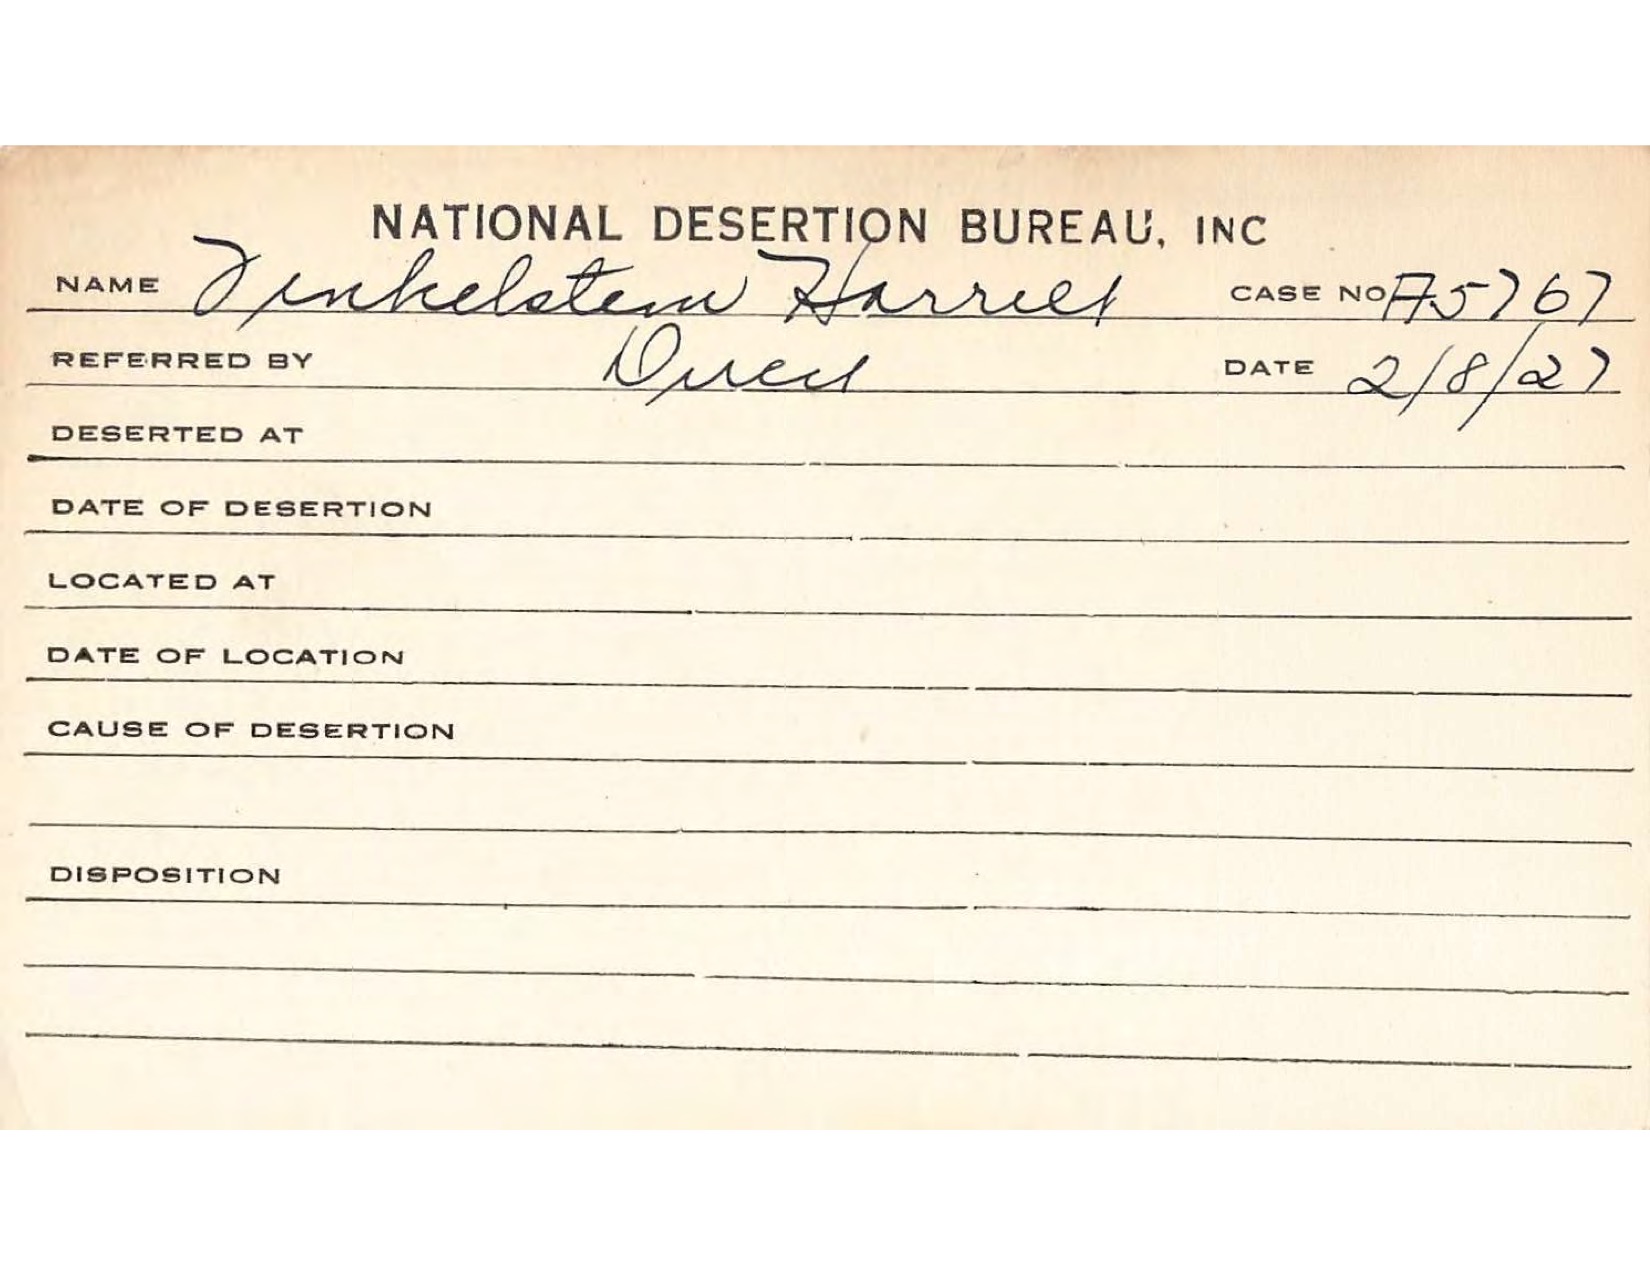 NATIONAL DESERTION BUREAU, INC
NAME Finkelstein Harriet CASE NO A5767
REFERRED BY Direct DATE 2/8/27
DESERTED AT
DATE OF DESERTION
LOCATED AT
DATE OF LOCATION
CAUSE OF DESERTION
DISPOSITION